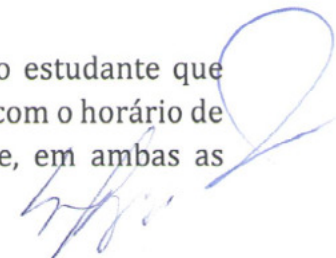 o estudante que
com o horário de
e, em ambas as